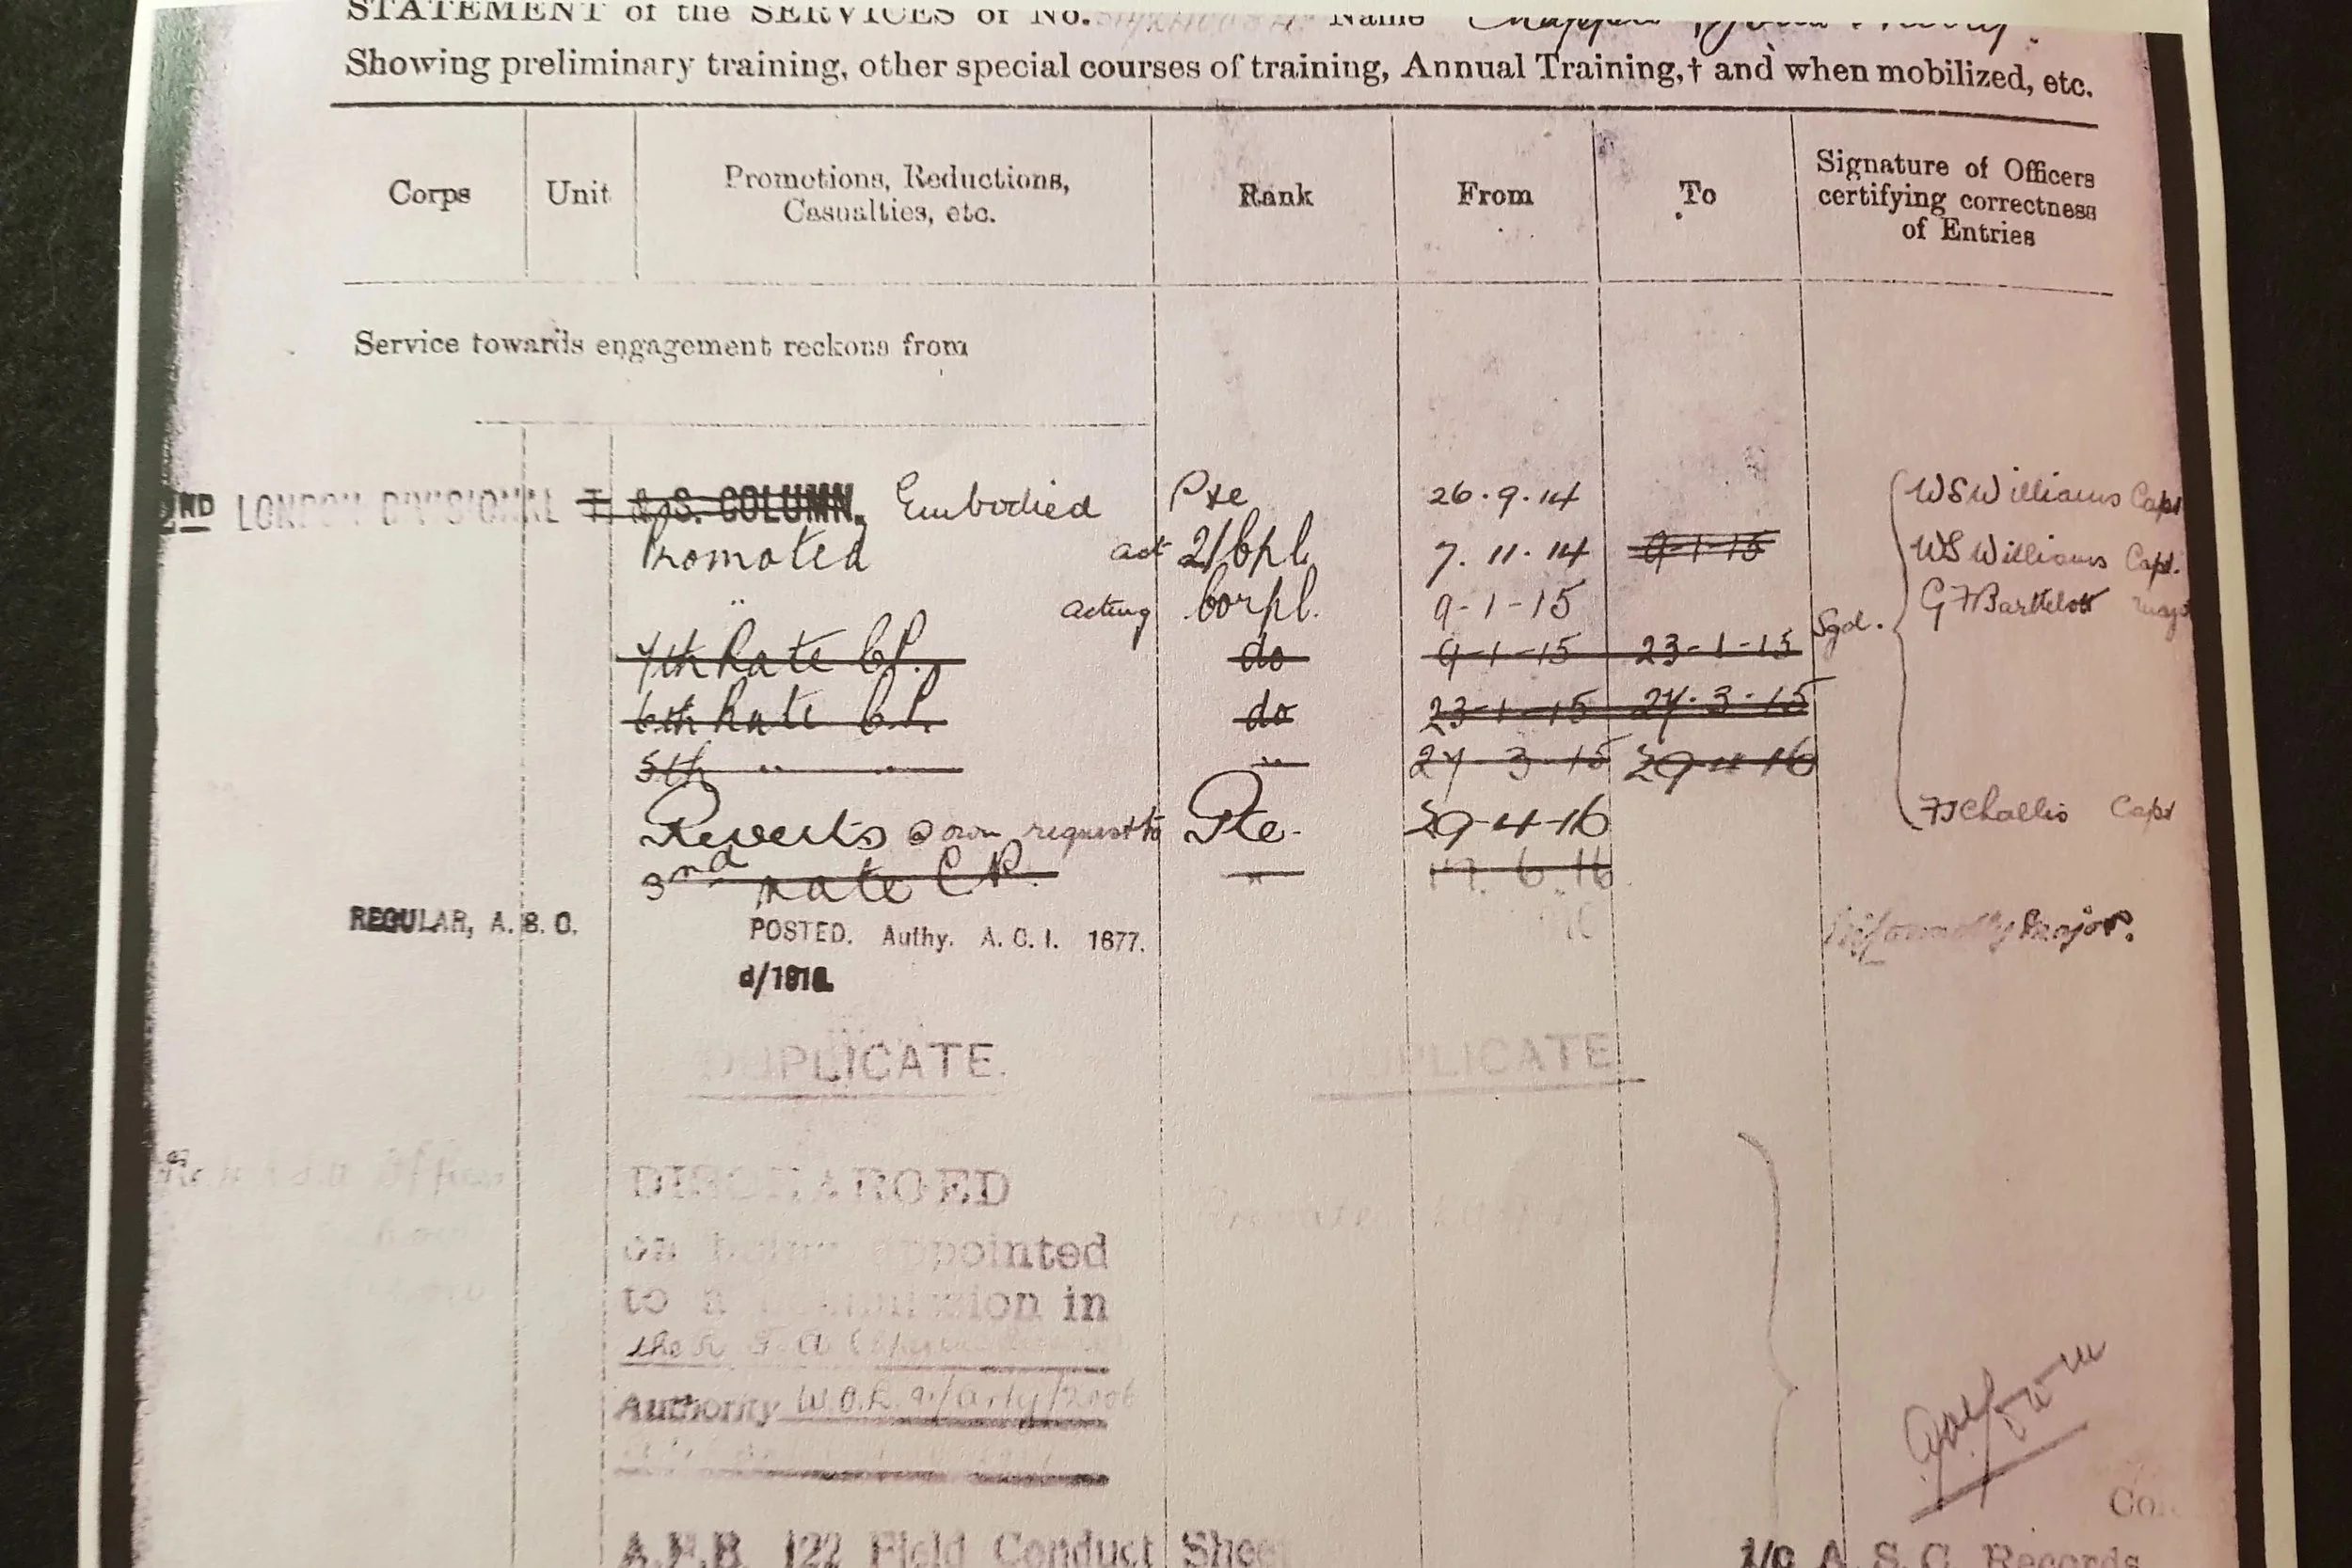 STATEMENT of the SERVICES of No. Name
Showing preliminary training, other special courses of training, Annual Training,† and when mobilized, etc.
Corps Unit Promotions, Reductions, Casualties, etc. Rank From To Signature of Officers certifying correctness of Entries
Service towards engagement reckons from
2ND LONDON DIVISIONAL T. & S. COLUMN. Embodied Pte 26.9.14 WS Williams Capt
Promoted act 2/Cpl. 7.11.14 9-1-15 WS Williams Capt.
" acting Corpl. 9-1-15 Sgd. G F Barttelot Maj
7th Rate C.P. do 9-1-15 23-1-15
6th Rate C.P. do 23-1-15 27.3.15
5th " " " 27 3 15 29 4 16
Reverts @ own request to Pte. 29-4-16 Challis Capt
3rd rate C.P. " 6.16
REGULAR, A.S.C. POSTED. Authy. A.C.I. 1677. Major.
d/1916.
DUPLICATE. DUPLICATE
DISCHARGED
on being appointed
to a commission in
the
Authority W.O.L.
A.F.B. 122 Field Conduct Sheet i/c A.S.C. Records